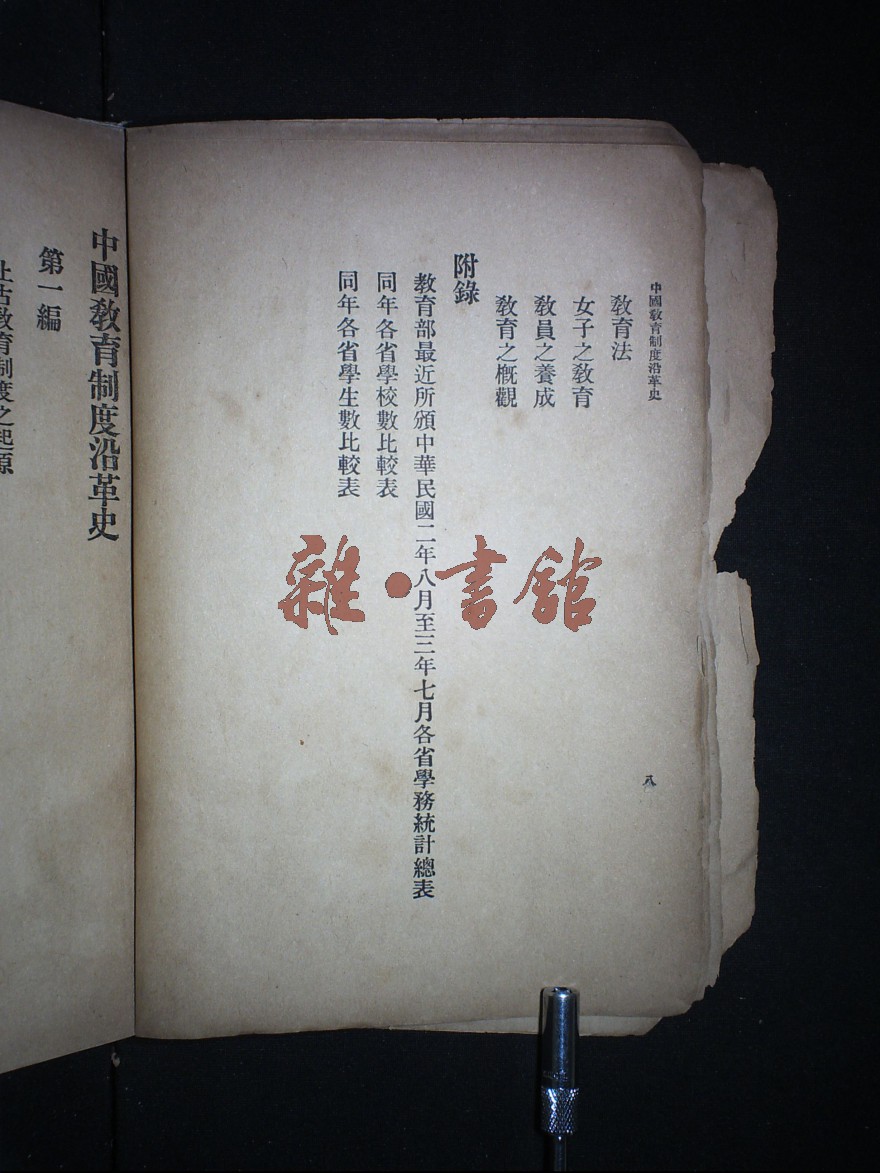 中國敎育制度沿革史
八
敎育法
女子之敎育
敎員之養成
敎育之槪觀
附錄
敎育部最近所頒中華民國二年八月至三年七月各省學務統計總表
同年各省學校數比較表
同年各省學生數比較表
雜·書館
中國敎育制度沿革史
第一編
上古敎育制度之起源